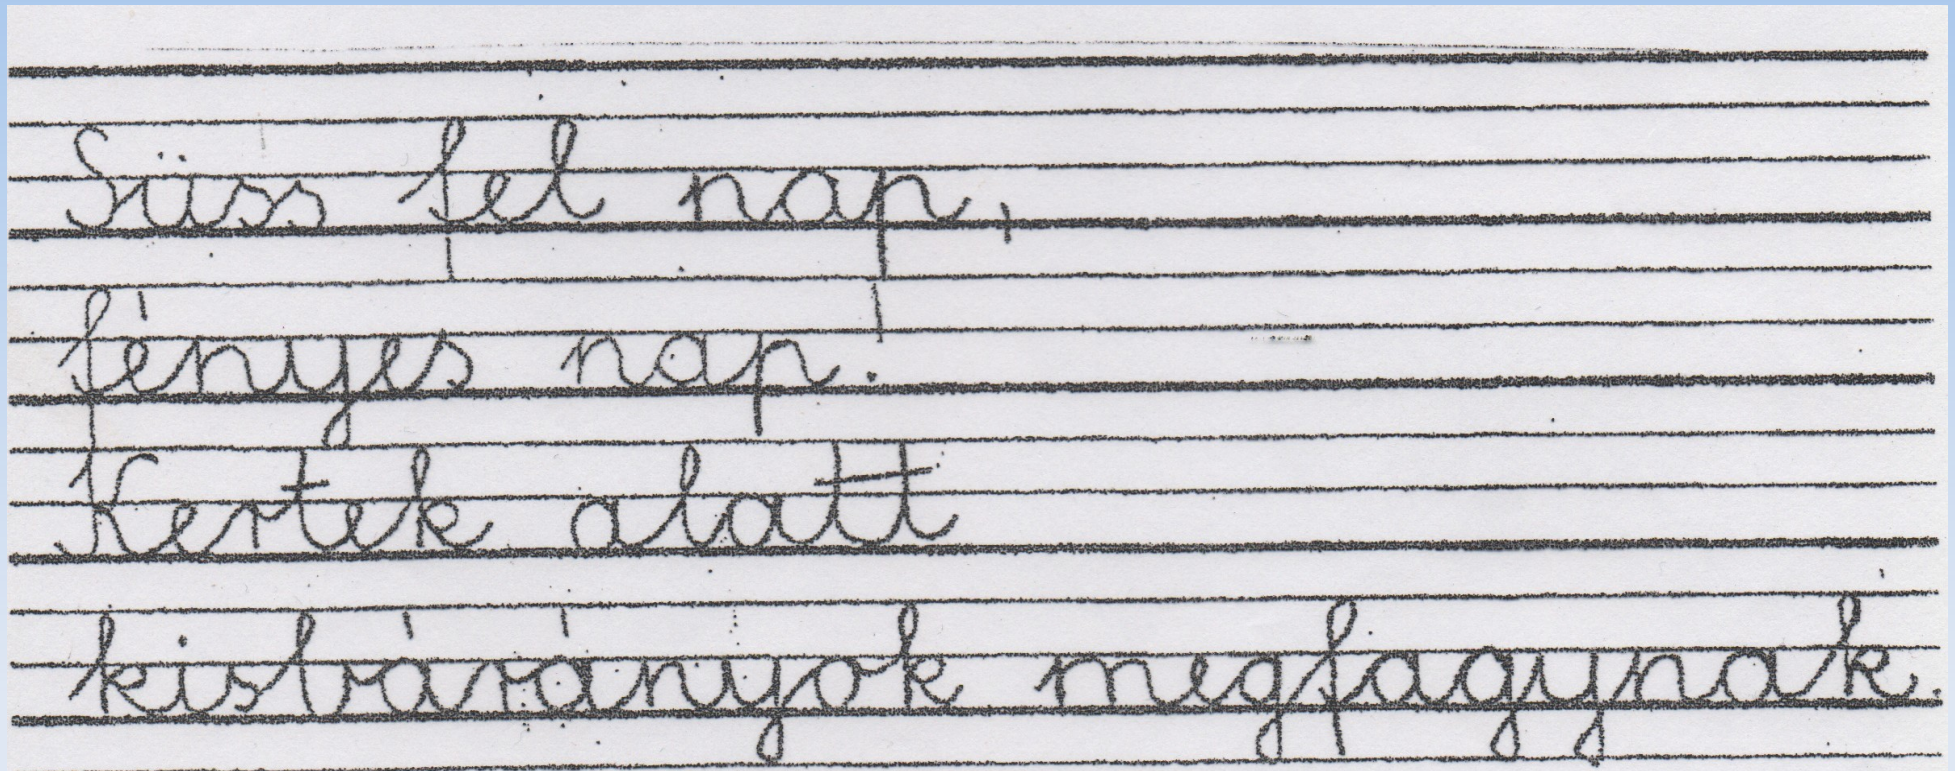 Süss fel nap,
fényes nap.
Kertek alatt
kisbárányok megfagynak.